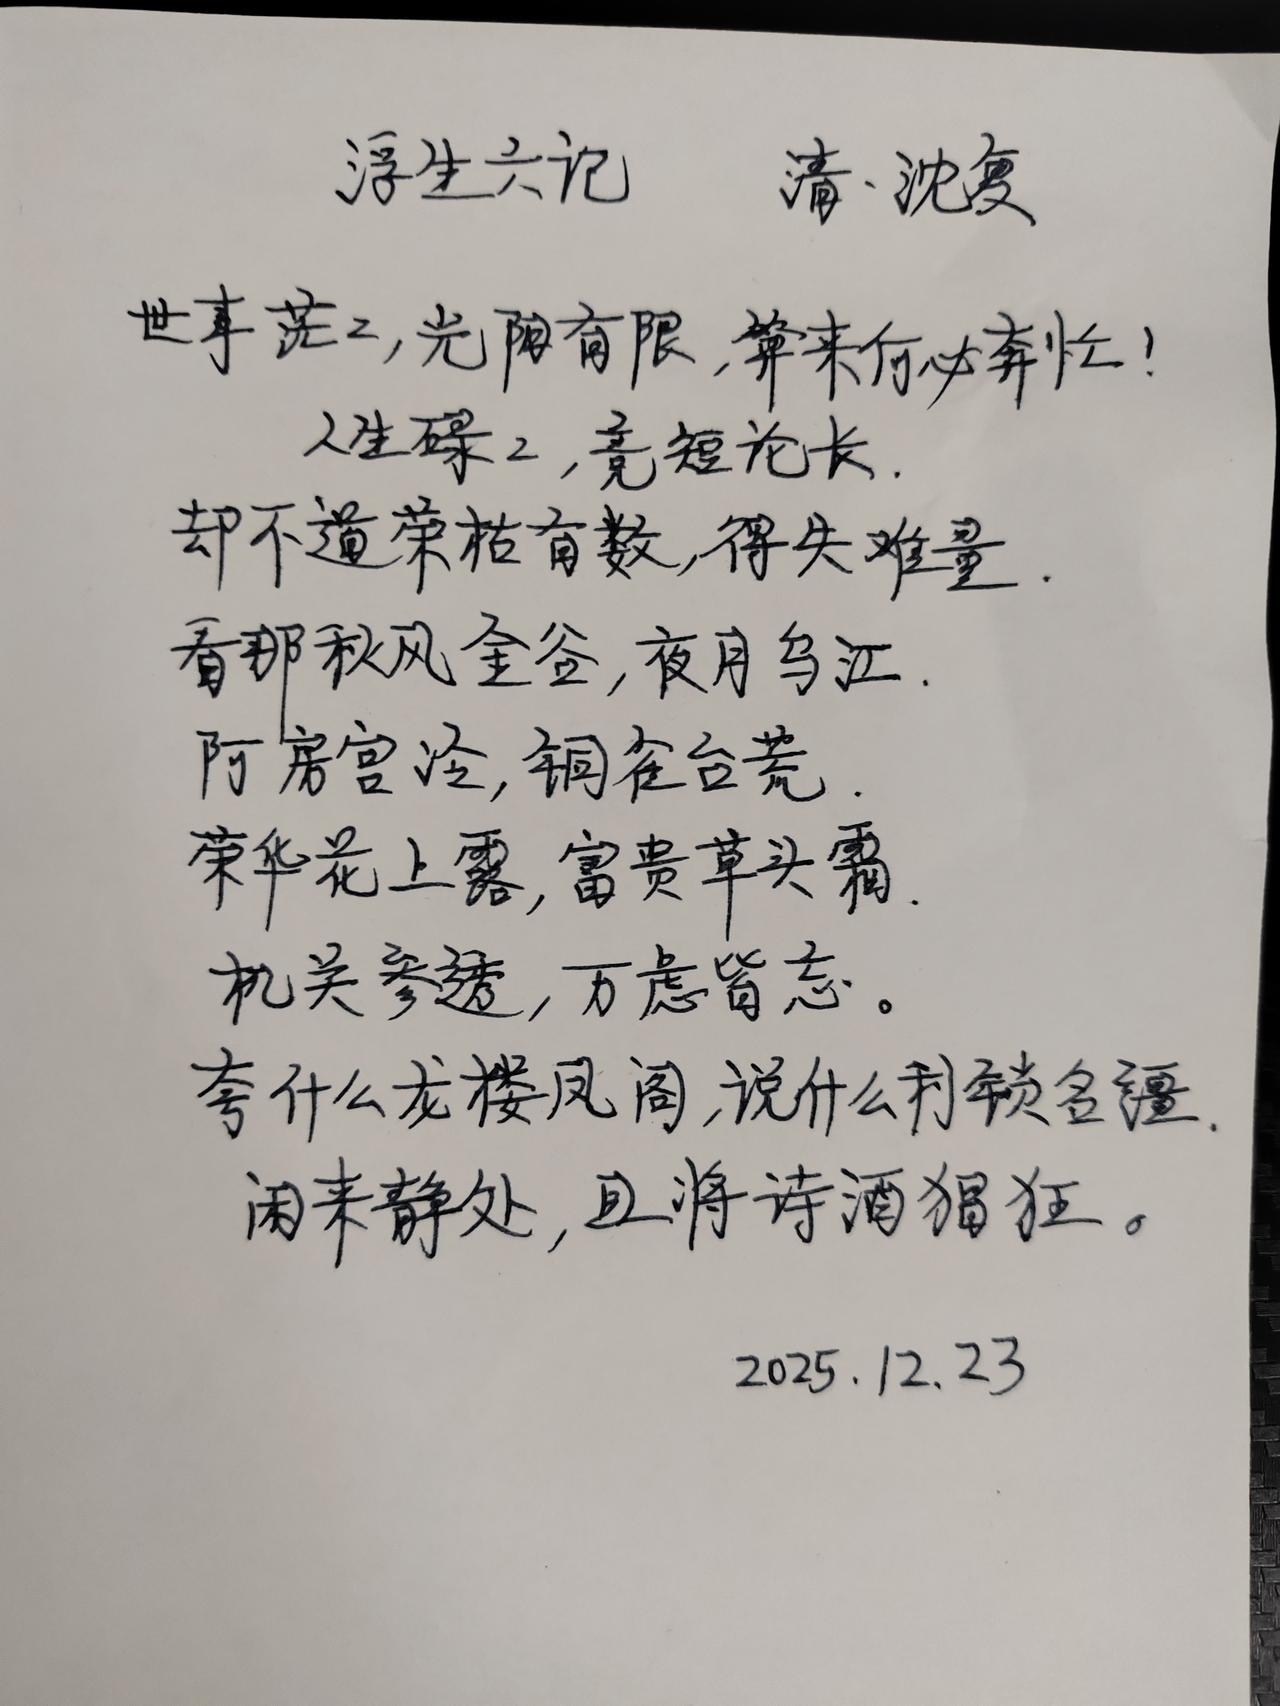 浮生六记 清·沈复
世事茫々,光阴有限,算来何必奔忙!
人生碌々,竞短论长.
却不道荣枯有数,得失难量.
看那秋风金谷,夜月乌江.
阿房宫泠,铜雀台荒.
荣华花上露,富贵草头霜.
机关参透,万虑皆忘。
夸什么龙楼凤阁,说什么利锁名疆.
闲来静处,且将诗酒猖狂。
2025.12.23